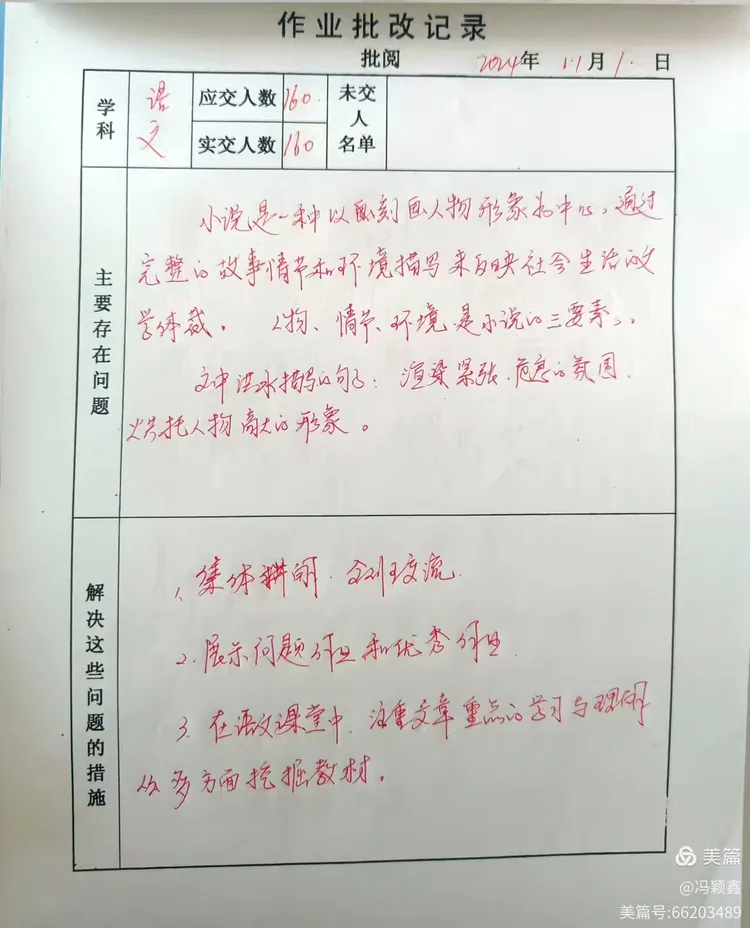 作业批改记录
批阅 2024年 11月 1. 日
学科 语文 应交人数 160. 未交人名单
实交人数 160
主要存在问题
小说是一种以刻画人物形象为中心，通过
完整的故事情节和环境描写来反映社会生活的文
学体裁。 人物、情节、环境是小说的三要素。
文中洪水描写的句子：渲染紧张.危急的氛围.
烘托人物高大的形象。
解决这些问题的措施
1、集体讲解. 个别交流.
2、展示问题作业和优秀作业.
3. 在语文课堂中. 注重文章重点的学习与理解
从多方面挖掘教材.
美篇
@冯颖鑫
美篇号:66203489